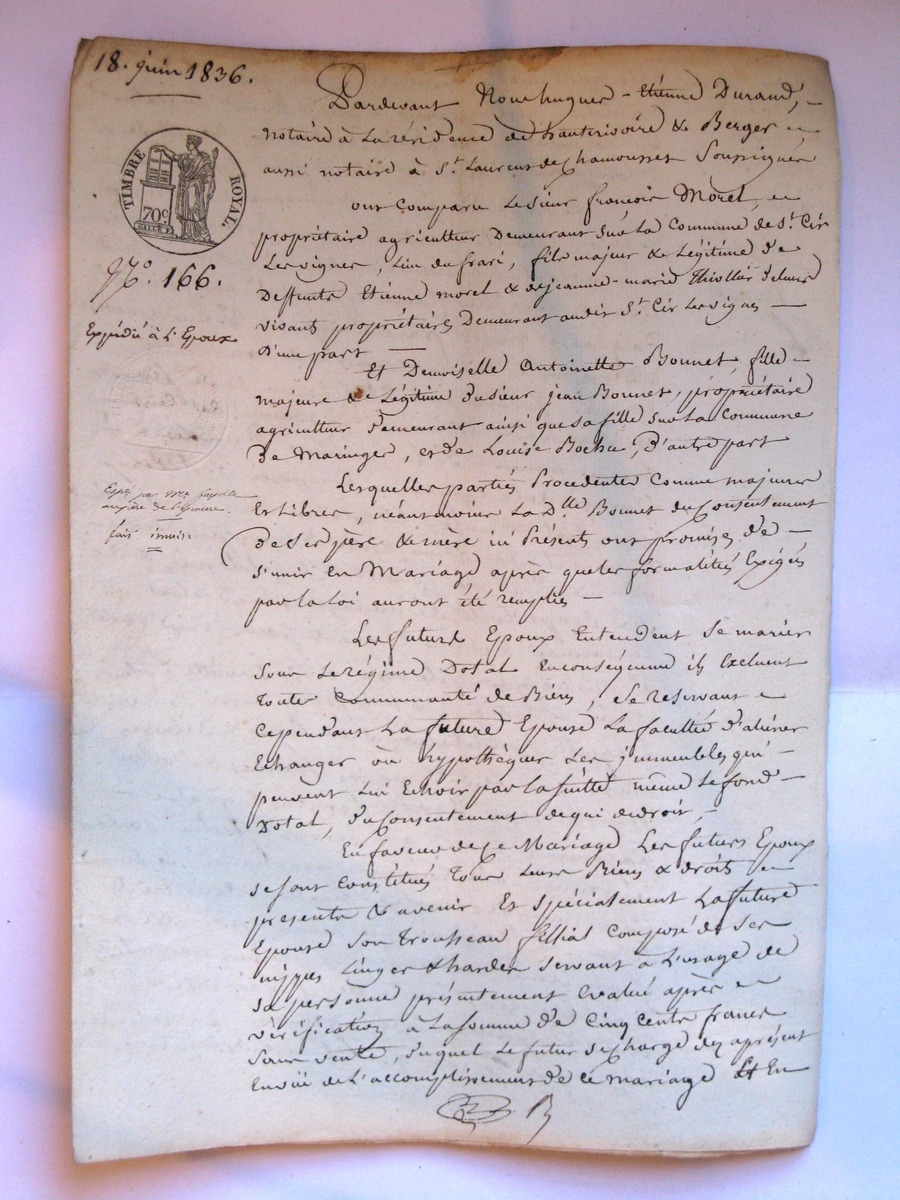 18. juin 1836.
TIMBRE ROYAL.
70c
N.° 166.
Expédié à L'Epoux
Expé par Mtre
fait
Pardevant Nous hugues - Etiénne Durand, -
notaire à La résidence de hauterivoire & Berger
aussi notaire à St. Laurent de Chamousset Soussignés
ont Comparu Le sieur francois Moret,
propriétaire agriculteur Demeurant sur La Commune de St. Cir
Les vignes, Lieu du frari, fils majeur & Légitime de
Deffunts Etiénne moret & de jeanne-marie Thiollier Deleurs
vivants propriétaires Demeurant audit St. Cir Les vignes —
D'une part —
Et Demoiselle Antoinette Bonnet, fille -
majeure & Légitime Du sieur jean Bonnet, propriétaire
agriculteur demeurant ainsi que sa fille sur La Commune
De Maringes, et de Louise Bochu, D'autre part
Lesquelles partiés Procedentes Comme majeures
Et Libres, néantmoins La Dlle Bonnet du Consentement
De Ses père & mère ici Présents ont promises de -
S'unir En Mariage après que les formalités Exigés
par La Loi auront été remplies —
Les futurs Epoux Entendent Se marier
Sous Le régime Dotal En conséquence ils Excluent
toute Communauté de Biens, Se reservant
Cependant La future Epouse La faculté D'aliéner
Echanger où hypothèquer Les jmmeubles qui -
peuvent Lui Echoir par La suitte même Le fond -
Dotal, du Consentement de qui de droit, -
En faveur de Ce Mariage Les futurs Epoux
se sont Constitués Tous Leurs Biens & droits
presents & avenir Et spécialement La future
Epouse Son Trousseau fillial Composé de Ses
nippes Linges & hardes servant à L'usage de
sa personne présentement Evalué après
vérification à La somme de Cinq Cents francs
Sans vente, duquel Le futur se charge dez aprésent
En vuë de L'accomplissement de ce mariage Et En
B